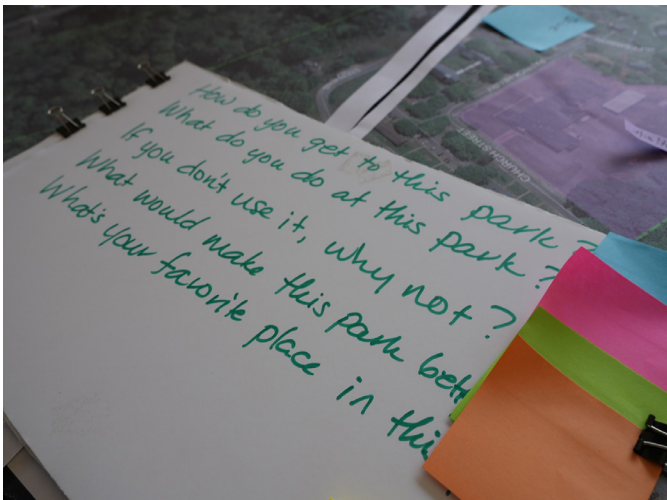 How do you get to this park?
What do you do at this park?
If you don't use it, why not?
What would make this park bett
What's your favorite place in thi
CHURCH STREET